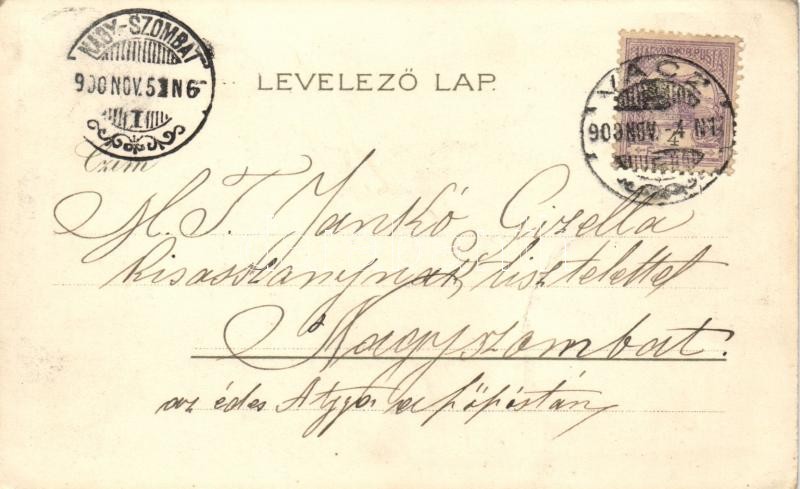 NAGY-SZOMBAT
900 NOV. 5 N6
LEVELEZŐ LAP.
MAGYAR KIR. POSTA
VÁCZ
900 NOV. -4 N1
Czím
M. T. Jankó Gizella
kisasszonynak tisztelettel
Nagyszombat.
az édes Atyja a főpóstán